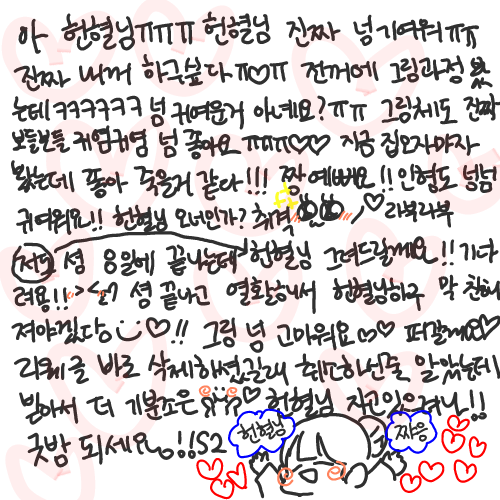 아 헌혈님ㅠㅠㅠ 헌혈님 진짜 넘 기여워ㅠㅠ
진짜 내꺼 하구싶다 ㅠ♡ㅠ 전꺼에 그림과정 봤
는데 ㅋㅋㅋㅋㅋㅋ 넘 귀여운거 아녜요?ㅠㅠ 그림체도 진짜
보들보들 귀염귀염 넘 좋아요 ㅠㅠㅠ♡♡ 지금 집오자마자
봤는데 좋아 죽을거 같다!!! 짱 예뻐요!! 인형도 넘넘
귀여워요!! 헌혈님 오너인가? 취격 ♡ 라뷰라뷰
저도 셤 응일에 끝나는데 헌혈님 그려드릴께요!! 기다
려용!! ><;? 셤 끝나고 열활해서 헌혈님하구 막 친해
져야겠당 ♡!! 그림 넘 고마워요♡♡ 퍼갈께요♡
리퀘글 바로 삭제하셨길래 취소하신줄 알았는데
받아서 더 기분조은 ♡ 헌혈님 자고있으려나!!
굿밤 되세요!!S2
헌혈님
짜응